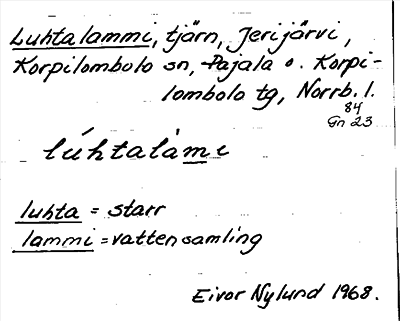 Luhtalammi, tjärn, Jerijärvi,
Korpilombolo sn, Pajala o. Korpi-
lombolo tg, Norrb. l.
84
Gn 23
lúhtalàmi
luhta = starr
lammi = vattensamling
Eivor Nylund 1968.